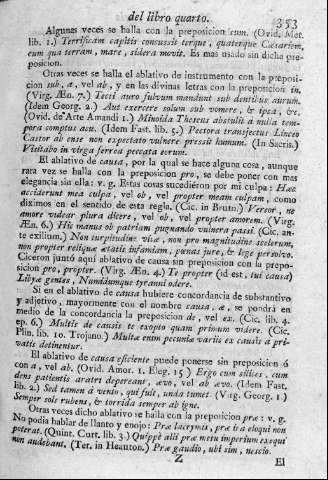 del libro quarto. 353
Algunas veces se halla con la preposicion cum. (Ovid. Met.
lib. 1.) Terrificam capitis concussit terque, quaterque Cæsariem,
cum qua terram, mare, sidera movit. Es mas usado sin dicha pre-
posicion.
Otras veces se halla el ablativo de instrumento con la preposi-
cion sub, a, vel ab, y en las divinas letras con la preposicion in.
(Virg. Æn. 7.) Tecti auro fulvum mandunt sub dentibus aurum.
(Idem Georg. 2.) Aut exercere solum sub vomere, & ipsa, &c.
(Ovid. de Arte Amandi 1.) Minoida Theseus abstulit a nulla tem-
pora comptus acu. (Idem Fast. lib. 5.) Pectora transjectus Lynceo
Castor ab ense non expectato vulnere pressit humum. (In Sacris.)
Visitabo in virga ferrea peccata eorum.
El ablativo de causa, por la qual se hace alguna cosa, aunque
rara vez se halla con la preposicion pro, se debe poner con mas
elegancia sin ella: v. g. Estas cosas sucedieron por mi culpa: Hæc
acciderunt mea culpa, vel ob, vel propter meam culpam, como
diximos en el sentido de esta regla. (Cic. in Bruto.) Vereor, ne
amore videar plura dicere, vel ob, vel propter amorem. (Virg.
Æn. 6.) Hic manus ob patriam pugnando vulnera passi. (Cic. an-
te exilium.) Non turpitudine vitæ, non pro magnitudine scelerum,
non propter reliquæ ætatis infamiam, punas jure, & lege persolvo.
Ciceron juntó aqui ablativo de causa sin preposicion con la prepo-
sicion pro, propter. (Virg. Æn. 4.) Te propter (id est, tui causa)
Libyæ gentes, Numidumque tyranni odere.
Si en el ablativo de causa hubiere concordancia de substantivo
y adjetivo, mayormente con el nombre causa, æ, se pondrá en
medio de la concordancia la preposicion de, vel ex. (Cic. lib. 4.
ep. 6.) Multis de causis te exopto quam primum videre. (Cic.
Plin. lib. 10. Trojano.) Multæ enim pecuniæ variis ex causis a pri-
vatis detinentur.
El ablativo de causa eficiente puede ponerse sin preposicion ó
con a, vel ab. (Ovid. Amor. 1. Eleg. 15) Ergo cum silices, cum
dens patientis aratri depereant, ævo, vel ab ævo. (Idem Fast.
lib. 2.) Sed tamen à vento, qui fuit, unda tumet. (Virg. Georg. 1.)
Semper sole rubens, & torrida semper ab igne.
Otras veces dicho ablativo se halla con la preposicion præ: v. g.
No podia hablar de llanto y enojo: Præ lacrymis, præ ira eloqui non
poterat. (Quint. Curt. lib. 3.) Quippè alii præ metu imperium exequi
non audebant. (Ter. in Heauton.) Præ gaudio, ubi sim, nescio.
Z El